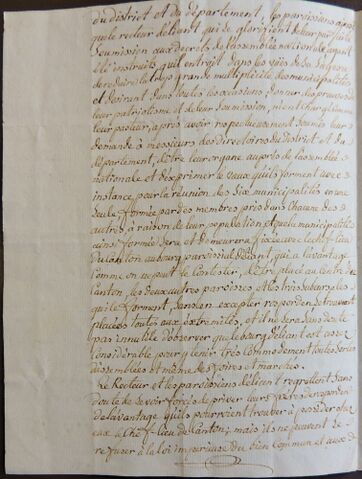 du district et du département, les paroissiens ainsi
que le recteur d'Elliant qui se glorifient de leur parfaite
soumission aux decrets de l'assemblée nationale ayant
été instruits qu'il entroit dans les vües de sa sagesse
de reduire la trop grande multiplicité des municipalités
et désirant dans toutes les occasions donner des preuves de
leur patriotisme et de leur soumission, n'ient chargé
leur pasteur, après avoir respectueusement soumis leur
demande à messieurs des directoires du District et du
département, d'être leur organe auprès de l'assemblée
nationale et d'exprimer le vœux qu'ils forment avec
instance pour la réunion des six municipalités en une
seule formée par des membres pris dans chacune des
autres, à raison de leur population et que la municipalité
ainsi formée sera et demeurera fixée au chef-lieu
du Canton au bourg paroissial d'Elliant, qui a l'avantage
comme on ne peut le contester, d'être placé au centre du
Canton, les deux autres paroisses et les trois
qu'elle forment, sans en excepter rosporden, se trouvant
placées toutes aux extrémités, et il ne sera sans doute
pas innutile d'observer que le bourg d'Elliant est assez
considérable pour y tenir très commodement toutes sortes
d'assemblées et même des foires et marchés.
Le Recteur et les paroissiens d'Elliant regrettent sans
doute de se voir forcés de priver leurs frères de rosporden
de l'avantage qu'ils pourroient trouver à posséder chez
eux le Chef-Lieu de Canton; mais ils ne peuvent se
refuser à la loi imperieuse du bien commun et aux